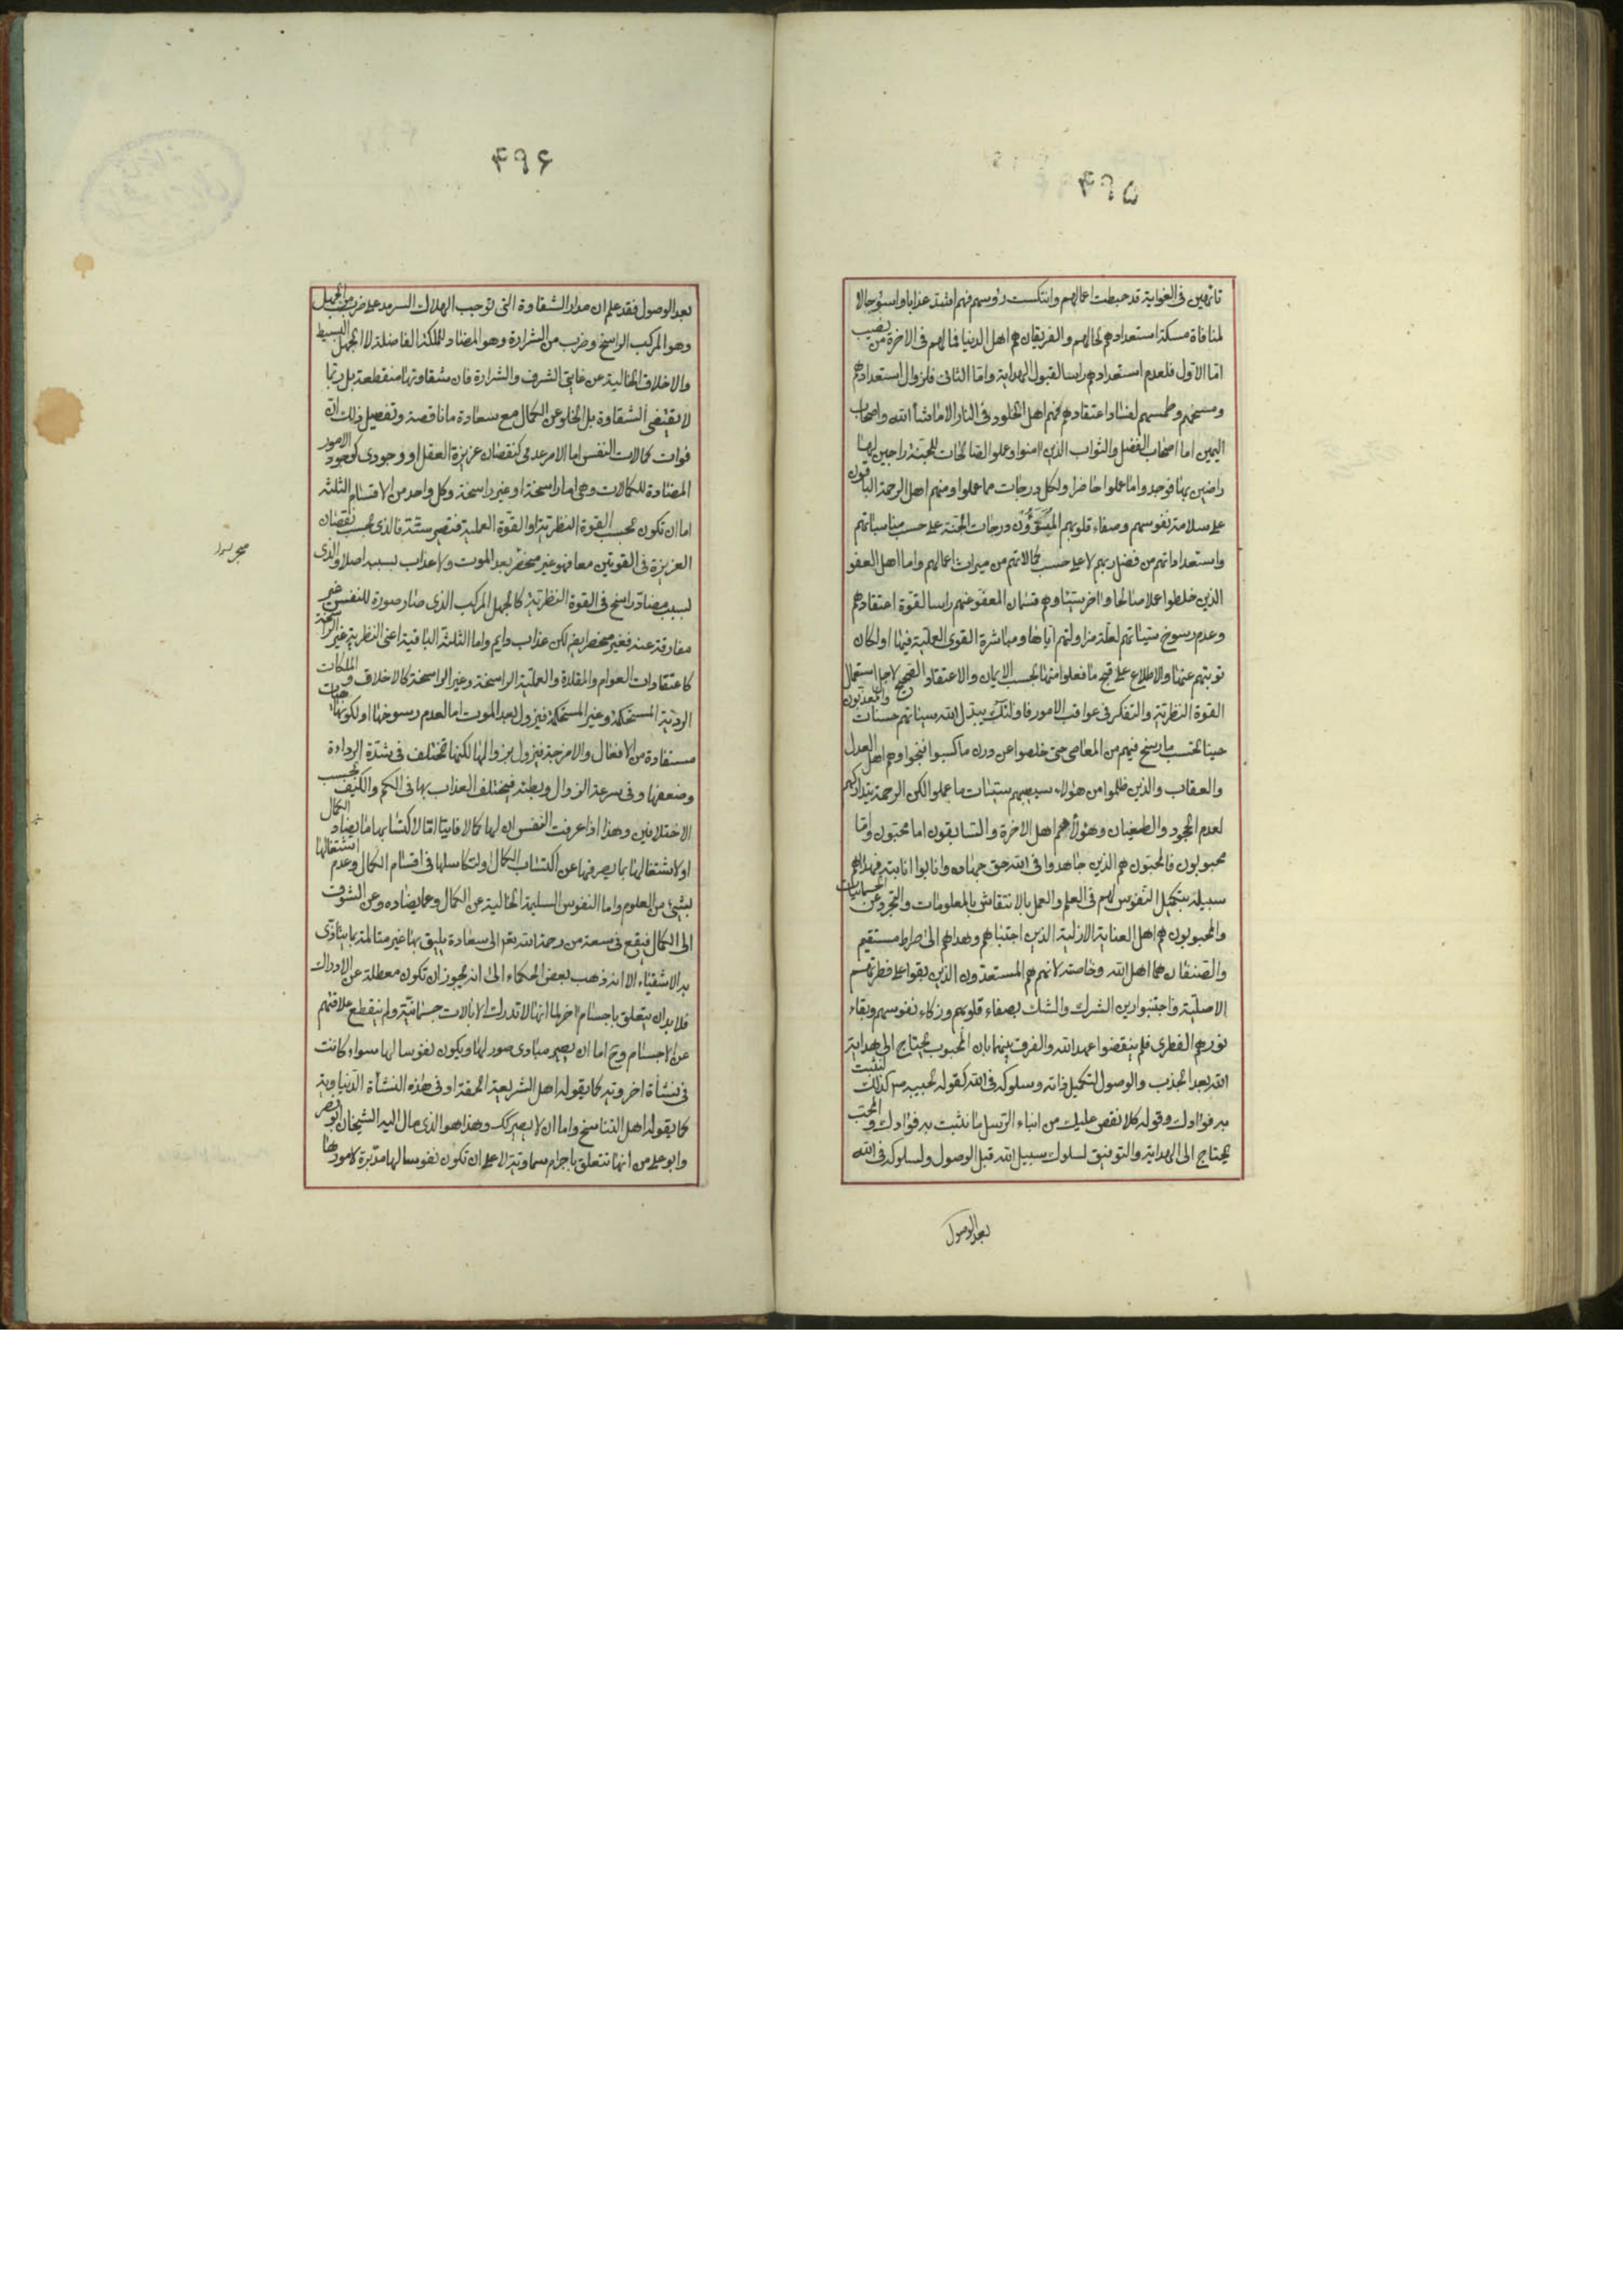 ۴۹۵
تائهين فى الغواية قد حبطت اعمالهم وانتكست رؤسهم فهم اشد عذابا واسوء حالا
لمنافاة مسكة استعدادهم لحالهم والفريقان هم اهل الدنيا فما لهم فى الاخرة من نصيب
اما الاول فلعدم استعدادهم راسا لقبول الهداية واما الثانى فلزوال استعدادهم
ومسخهم وطمسهم لفساد اعتقادهم فهم اهل الخلود فى النار الا ما شاء الله واصحاب
اليمين اما اصحاب الفضل والثواب الذين امنوا وعملوا الصالحات للجنة راجين لها
راضين بها فوجدوا ما عملوا حاضرا ولكل درجات مما عملوا ومنهم اهل الرحمة الباقون
على سلامة نفوسهم وصفاء قلوبهم المتبوّؤن درجات الجنة على حسب مناسباتهم
واستعداداتهم من فضل ربهم لا على حسب كمالاتهم من ميراث اعمالهم واما اهل العفو
الذين خلطوا عملا صالحا واخر سيئا وهم قسمان المعفو عنهم راسا لقوة اعتقادهم
وعدم رسوخ سيئاتهم لقلة مزاولتهم اياها ومباشرة القوى العملية فيها او لمكان
توبتهم عنها والاطلاع على قبح ما فعلوا منها بحسب الايمان والاعتقاد الصحيح لاجل استعمال
القوة النظرية والتفكر فى عواقب الامور فاولئك يبدل الله سيئاتهم حسنات والمعذبون
حينا بحسب ما رسخ فيهم من المعاصى حتى خلصوا عن درن ما كسبوا فنجوا وهم اهل العدل
والعقاب والذين ظلموا من هؤلاء سيصيبهم سيئات ما عملوا لكن الرحمة تتداركهم
لعدم الجحود والطغيان وهؤلاء هم اهل الاخرة والسابقون اما محبون واما
محبوبون فالمحبون هم الذين جاهدوا فى الله حق جهاده وانابوا انابته فهداهم
سبيله بتكميل النفوس لهم فى العلم والعمل بالانتقاش بالمعلومات والتجرد عن الجسمانيات
والمحبوبون هم اهل العناية الازلية الذين اجتباهم وهداهم الى صراط مستقيم
والصنفان هما اهل الله وخاصته لانهم هم المستعدون الذين بقوا على فطرتهم
الاصلية واجتنبوا رين الشرك والشك بصفاء قلوبهم وزكاء نفوسهم وبقاء
نورهم الفطرى فلم ينقضوا عهد الله والفرق بينهما بان المحبوب يحتاج الى هداية
الله بعد الجذب والوصول لتكميل ذاته وسلوكه فى الله كقوله لحبيبه ص كذلك لنثبت
به فؤادك وقوله كلا نقص عليك من انباء الرسل ما نثبت به فؤادك والمحب
يحتاج الى الهداية والتوفيق لسلوك سبيل الله قبل الوصول ولسلوكه فى الله
بعد الوصول
۴۹۶
بعد الوصول فقد علم ان مدار الشقاوة التى توجب الهلاك السرمد على ضرب من الجهل
وهو المركب الراسخ وضرب من الشرارة وهو المضاد للملكة الفاضلة لا الجهل البسيط
والاخلاق الخالية عن غايتى الشرف والشرارة فان شقاوتها منقطعة بل ربما
لا يقتضى الشقاوة بل الخلو عن الكمال مع سعادة ما ناقصة وتفصيل ذلك انه
فوات كمالات النفس اما الامر عدمى كنقصان غريزة العقل او وجودى كوجود الامور
المضادة للكمالات وهى اما راسخة او غير راسخة وكل واحد من الاقسام الثلثة
اما ان تكون بحسب القوة النظرية او القوة العملية فتصير ستة فالذى بحسب نقصان
الغريزة فى القوتين معا فهو غير منجبر بعد الموت ولا عذاب بسببه اصلا والذى
بسبب مضاد راسخ فى القوة النظرية كالجهل المركب الذى صار صورة للنفس غير
مفارقة عنه فغير منجبر ايضا لكن عذاب دايم واما الثلثة الباقية اعنى النظرية غير الراسخة
كاعتقادات العوام والمقلدة والعملية الراسخة وغير الراسخة كالاخلاق والملكات
الردية المستحكمة وغير المستحكمة فيزول بعد الموت اما لعدم رسوخها او لكونها هيات
مستفادة من الافعال والامزجة فيزول بزوالها لكنها تختلف فى شدة الرداءة
وضعفها وفى سرعة الزوال وبطئه فيختلف العذاب بها فى الكم والكيف بحسب
الاختلافين وهذا اذا عرفت النفس ان لها كمالا فايتا اما لاكتسابها ما يضاد الكمال
او لاشتغالها بما يصرفها عن اكتساب الكمال او لتكاسلها فى اقتسام الكمال وعدم اشتغالها
بشئ من العلوم واما النفوس السليمة الخالية عن الكمال وعما يضاده وعن الشوق
الى الكمال فيقع فى سعة من رحمة الله تعم الى سعادة يليق بها غير متالمة بما يتاذى
به الاشقياء الا انه ذهب بعض الحكماء الى انه يجوز ان تكون معطلة عن الادراك
فلا بد ان يتعلق باجسام اخر لما انها لا تدرك الا بالات جسمانية ولم ينقطع علاقتهم
عن الاجسام وح اما ان يصير مبادى صور لها ويكون نفوسا لها سواء كانت
فى نشأة اخروية كما يقوله اهل الشريعة الحقة او فى هذه النشأة الدنياوية
كما يقوله اهل التناسخ واما ان لا يصير كك وهذا هو الذى مال اليه الشيخان ابو نصر
وابو على من انها تتعلق باجرام سماوية لا على ان تكون نفوسا لها مدبرة لامورها